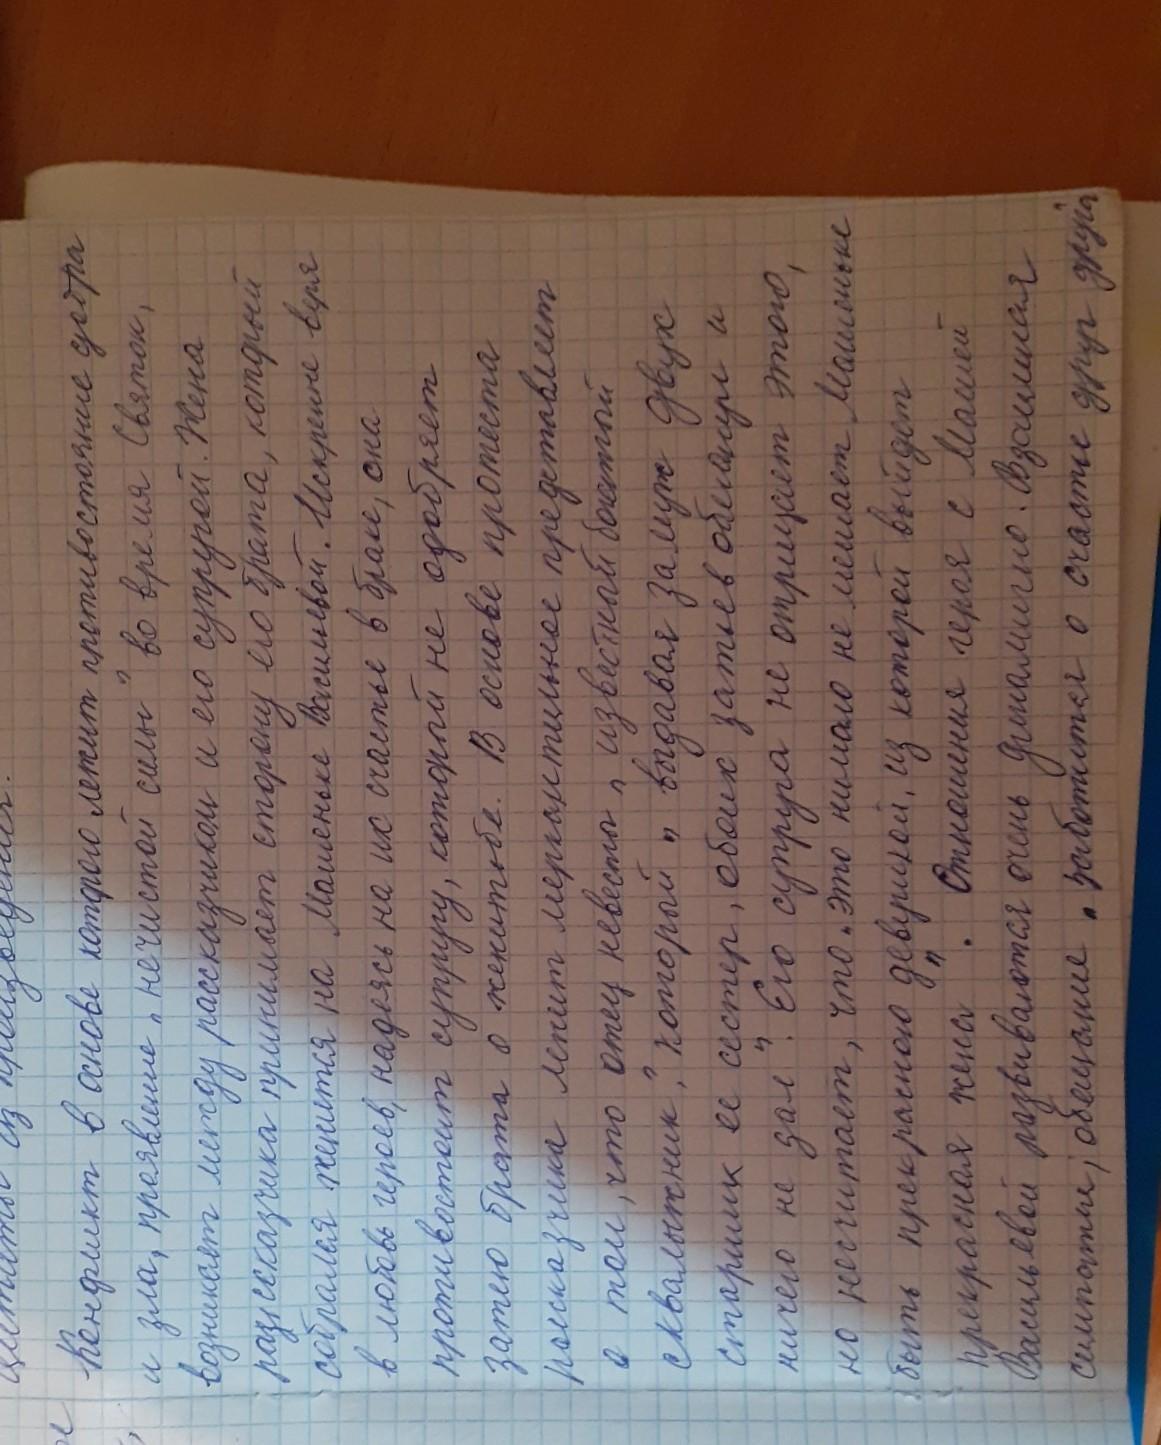 цитаты из произведения.
Конфликт в основе которого лежит противостояние добра
и зла, проявление „нечистой силы" во время Святок,
возникает между рассказчиком и его супругой. Жена
рассказчика принимает сторону его брата, который
собрался жениться на Машеньке Васильевой. Искренне веря
в любовь героев, надеясь на их счастье в браке, она
противостоит супругу, который не одобряет
затею брата о женитьбе. В основе протеста
рассказчика лежит меркантильное представление
о том, что отец невесты „известный богатый
сквалыжник", который „выдавая замуж двух
старших ее сестер, обоих затьев обманул и
ничего не дал". Его супруга не отрицает этого,
но не считает, что „это нимало не мешает Машеньке
быть прекрасною девушкой, из которой выйдет
прекрасная жена". Отношения героя с Машей
Васильевой развиваются очень динамично. Взаимная
симпатия, обещание „заботиться о счастье друг друга